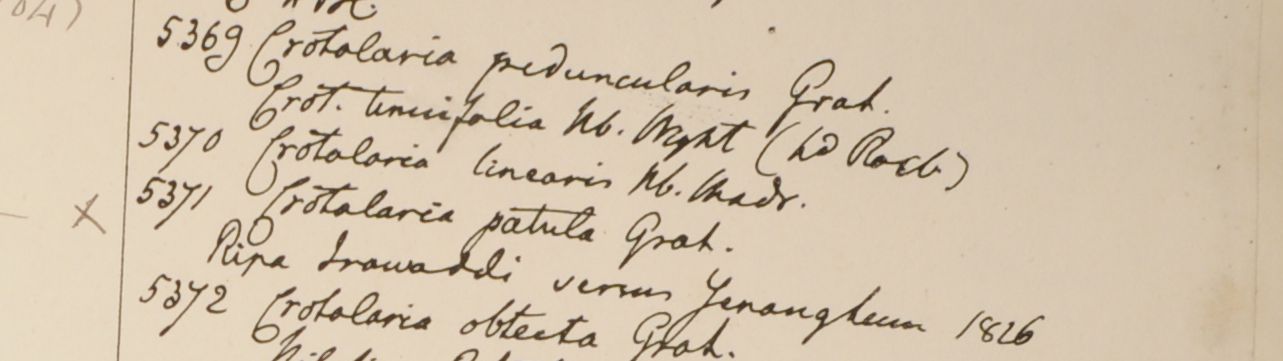 5369 Crotalaria peduncularis Grah.
Crot. tenuifolia hb. Wight (hd Roxb)
5370 Crotalaria linearis hb. Madr.
5371 Crotalaria patula Grah.
Ripa Irawaddi versus Yenangheun 1826
5372 Crotalaria obtecta Grah.